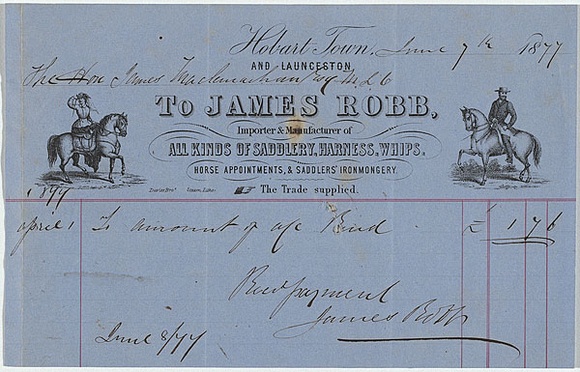 Hobart Town, June 7th 1877
AND LAUNCESTON
The Hon James Maclanachan Esq M.L.C
To JAMES ROBB,
Importer & Manufacturer of
ALL KINDS OF SADDLERY, HARNESS, WHIPS,
HORSE APPOINTMENTS, & SADDLERS' IRONMONGERY.
The Trade supplied.
1877
April 1 To amount of a/c Rend £ 1 7 6
Recd payment
James Robb
June 8/77